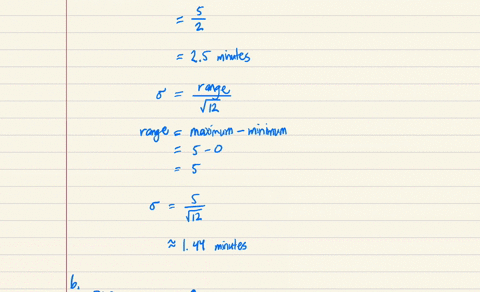 = 5/2
= 2.5 minutes
σ = range/√12
range = maximum - minimum
= 5 - 0
= 5
σ = 5/√12
≈ 1.44 minutes
b.